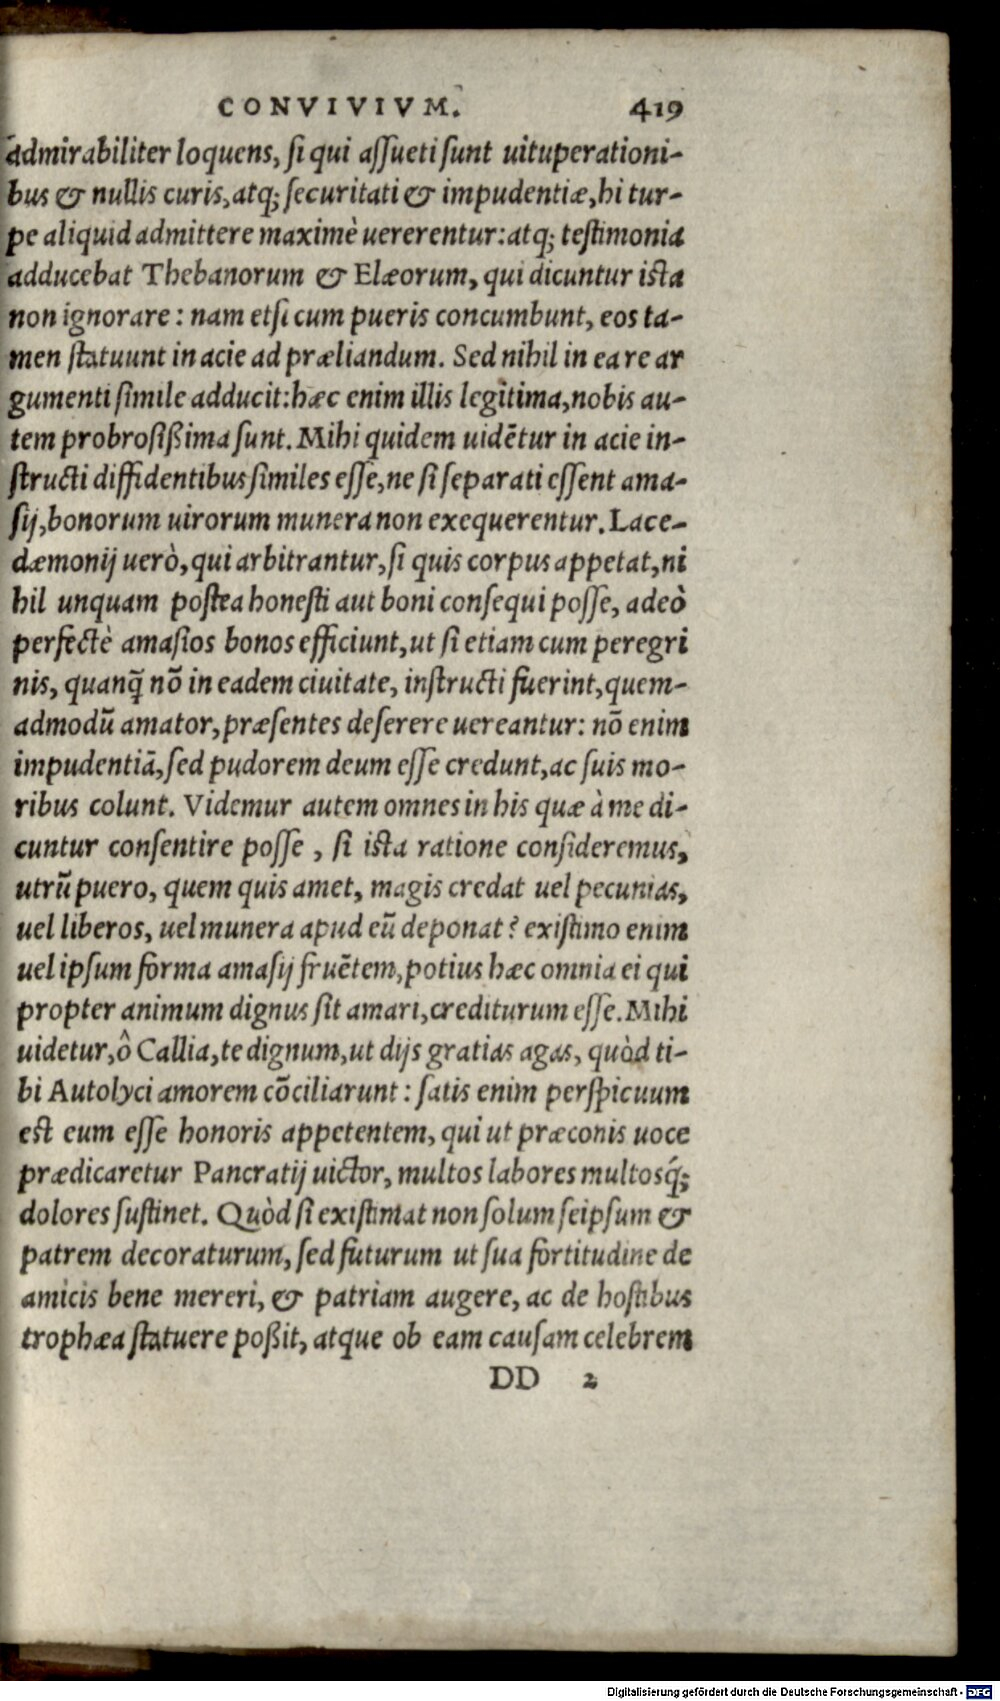 CONVIVIVM. 419
admirabiliter loquens, si qui assueti sunt uituperationi-
bus & nullis curis, atq; securitati & impudentiæ, hi tur-
pe aliquid admittere maximè uererentur: atq; testimonia
adducebat Thebanorum & Elæorum, qui dicuntur ista
non ignorare: nam etsi cum pueris concumbunt, eos ta-
men statuunt in acie ad præliandum. Sed nihil in ea re ar
gumenti simile adducit: hæc enim illis legitima, nobis au-
tem probrosißima sunt. Mihi quidem uidẽtur in acie in-
structi diffidentibus similes esse, ne si separati essent ama-
sij, bonorum uirorum munera non exequerentur. Lace-
dæmonij uerò, qui arbitrantur, si quis corpus appetat, ni
hil unquam postea honesti aut boni consequi posse, adeò
perfectè amasios bonos efficiunt, ut si etiam cum peregri
nis, quanq̃ nõ in eadem ciuitate, instructi fuerint, quem-
admodũ amator, præsentes deserere uereantur: nõ enim
impudentiã, sed pudorem deum esse credunt, ac suis mo-
ribus colunt. Videmur autem omnes in his quæ à me di-
cuntur consentire posse, si ista ratione consideremus,
utrũ puero, quem quis amet, magis credat uel pecunias,
uel liberos, uel munera apud eũ deponat? existimo enim
uel ipsum forma amasij fruẽtem, potius hæc omnia ei qui
propter animum dignus sit amari, crediturum esse. Mihi
uidetur, ô Callia, te dignum, ut dijs gratias agas, quòd ti-
bi Autolyci amorem cõciliarunt: satis enim perspicuum
est eum esse honoris appetentem, qui ut præconis uoce
prædicaretur Pancratij uictor, multos labores multosq́;
dolores sustinet. Quòd si existimat non solum seipsum &
patrem decoraturum, sed futurum ut sua fortitudine de
amicis bene mereri, & patriam augere, ac de hostibus
trophæa statuere poßit, atque ob eam causam celebrem
DD 2
Digitalisierung gefördert durch die Deutsche Forschungsgemeinschaft - DFG